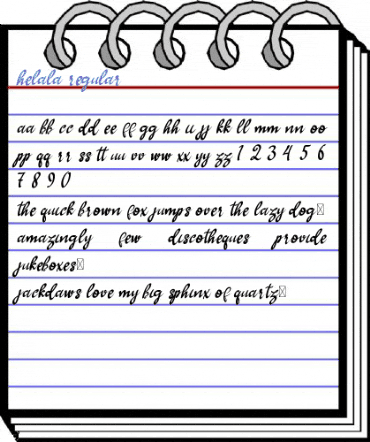 helala regular
aa bb cc dd ee ff gg hh ii jj kk ll mm nn oo
pp qq rr ss tt uu vv ww xx yy zz 1 2 3 4 5 6
7 8 9 0
the quick brown fox jumps over the lazy dog□
amazingly few discotheques provide
jukeboxes□
jackdaws love my big sphinx of quartz□